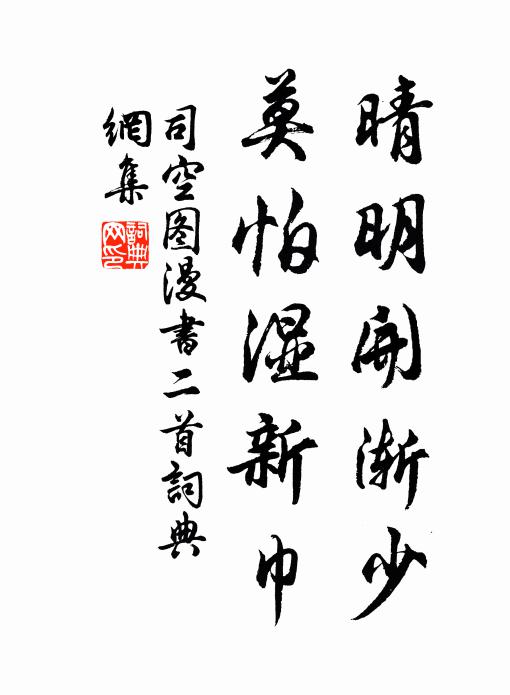 晴明開渐少
莫怕湿新巾
司空图漫書二首詞典
網集
詞典
网印